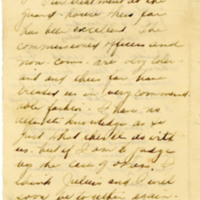 treatment at the
guard-house thus far
has been excellent. The
commissioned officers and
non-coms. are very toler-
ant and thus far have
treated us in very commend-
able fashion. I have no
definite knowledge as yet
just what they'll do with
us, but if I am to judge
by the case of others, I
think Julius and I will
soon be together again.